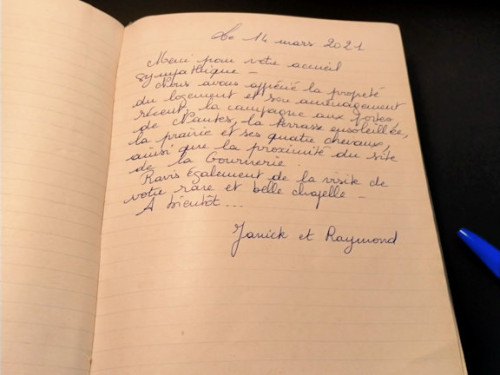 Le 14 mars 2021
Merci pour votre accueil
sympathique -
Nous avons apprécié la propreté
du logement et son aménagement
récent, la campagne aux portes
de Nantes, la terrasse ensoleillée,
la prairie et ses quatre chevaux,
ainsi que la proximité du site
de la Gournerie.
Ravis également de la visite de
votre rare et belle chapelle -
A bientôt ...
Janick et Raymond